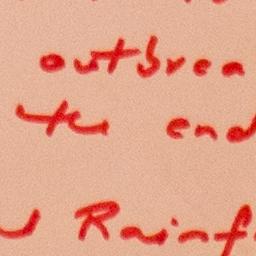 outbrea
the end
Rainf